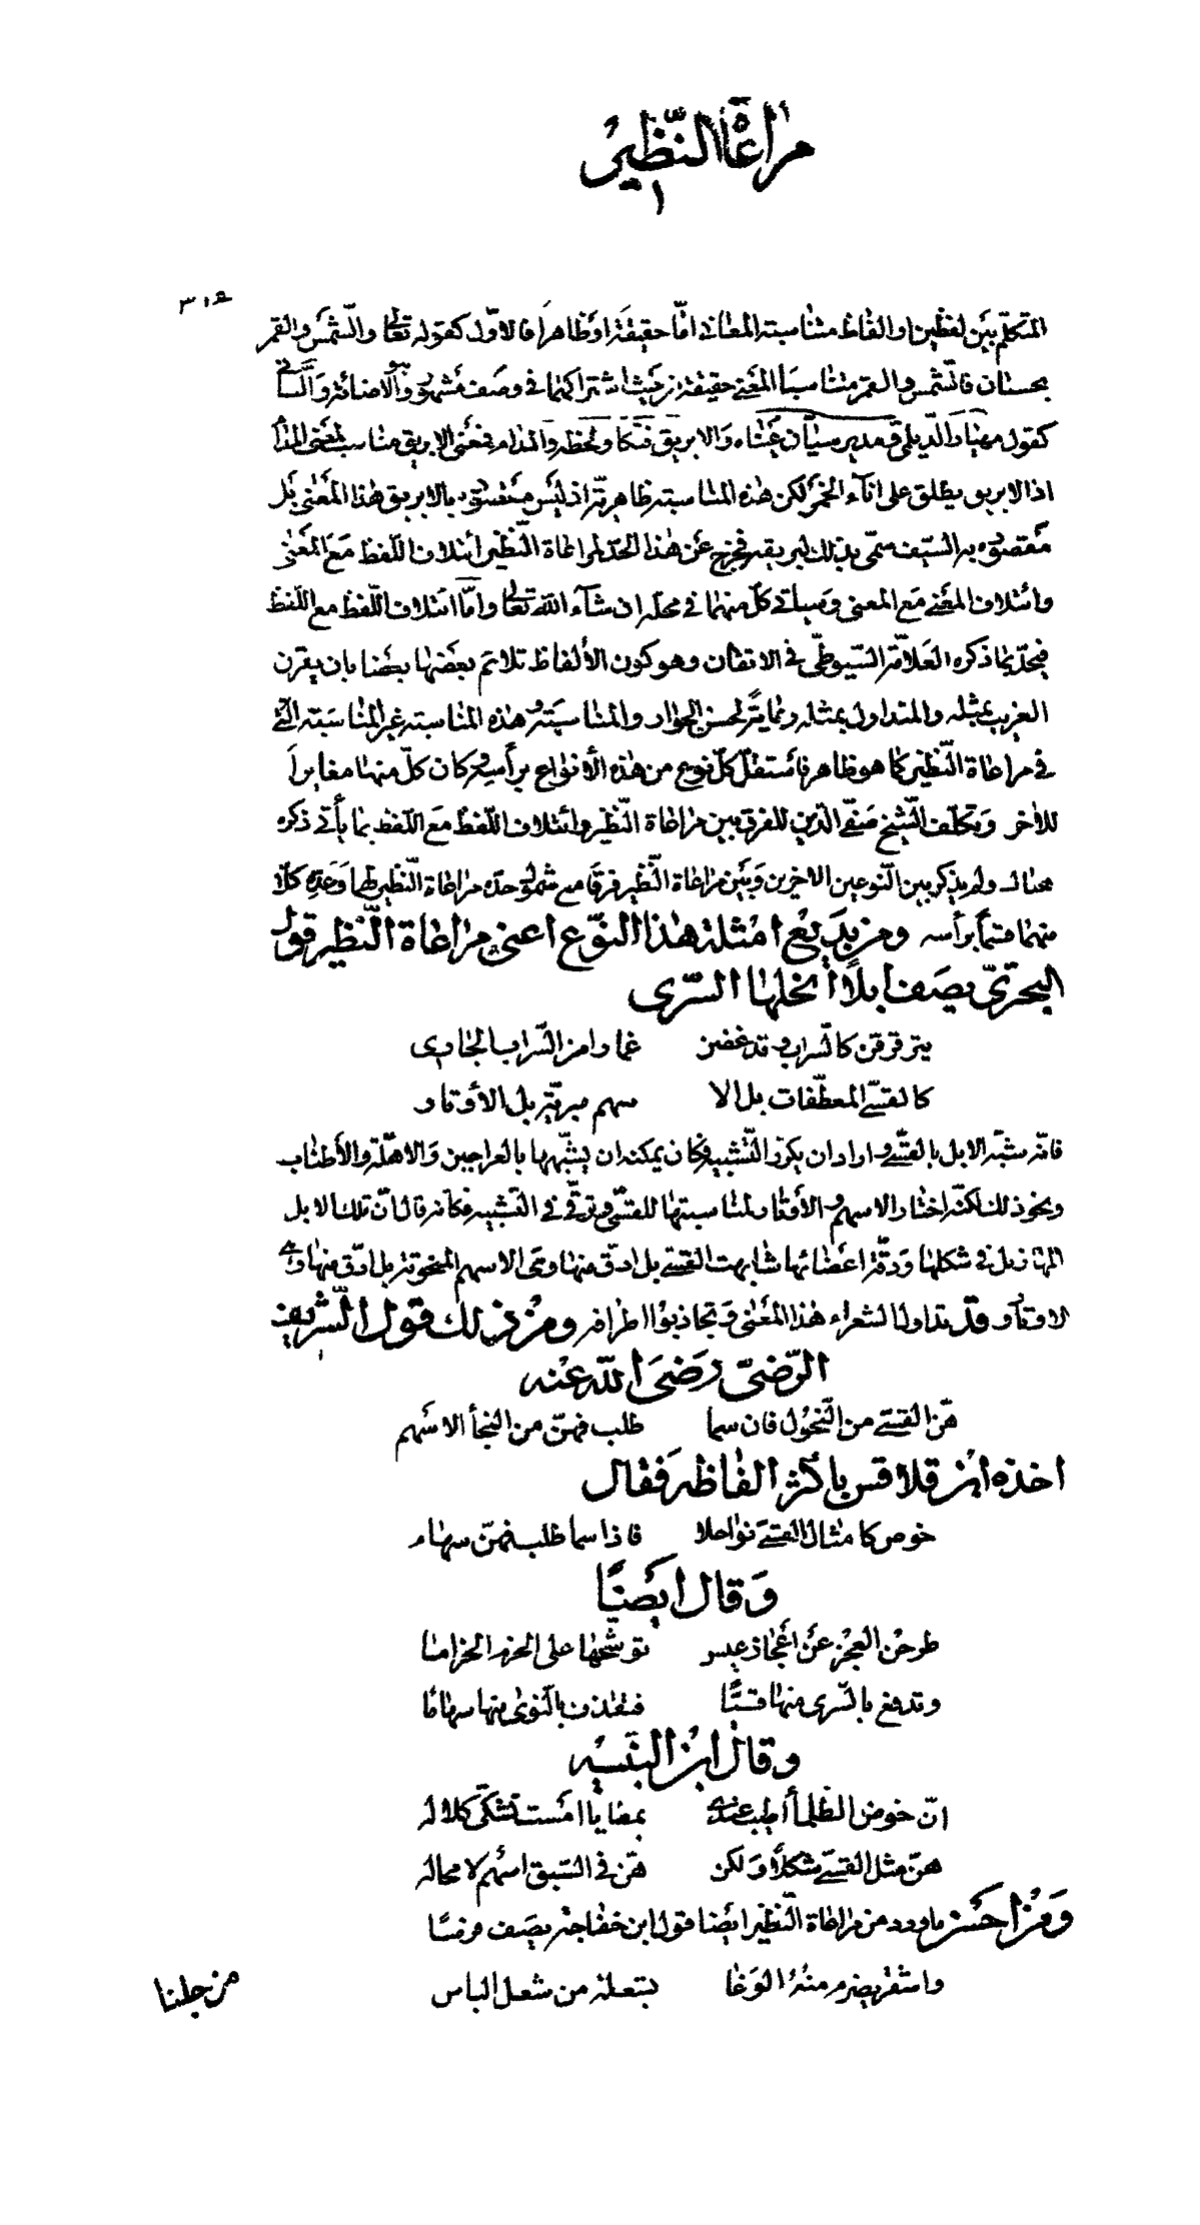 مراعاة النظير
١
٣١٥
المتكلم بين لفظين او الفاظ متناسبة المعانى امّا حقيقة او ظاهرا فالاوّل كقوله تعالى والشّمس والقمر
بحسبان فالشّمس والقمر متناسبا المعنى حقيقة من حيث اشتراكهما فى وصف مشهور وهو الاضائة والثّانى
كقول مهيار الدّيلمى ومدير سيّان عيناه والابريق فتكا ولحظه والمدام فمعنى الابريق مناسب لمعنى المدام
اذ الابريق يطلق على اناء الخمر لكن هذه المناسبة ظاهريّة اذ ليس مقصوده بالابريق هذا المعنى بل
مقصوده به السّيف سمّى بذلك لبريقه فخرج عن هذا الحدّ لمراعاة النّظير ائتلاف اللّفظ مع المعنى
وائتلاف المعنى مع المعنى وسيأتى كلّ منهما فى محلّه ان شاء الله تعالى وامّا ائتلاف اللّفظ مع اللّفظ
فبحدّ بما ذكره العلاّمة السّيوطىّ فى الاتقان وهو كون الألفاظ تلائم بعضها بعضا بان يقرن
الغريب بمثله والمتداول بمثله رعاية لحسن الجوار والمناسبة وهذه المناسبة غير المناسبة الّتى
فى مراعاة النّظير كما هو ظاهر فاستقلّ كلّ نوع من هذه الأنواع برأسه وكان كلّ منهما مغايراً
للاخر وتكلّف الشّيخ صفىّ الدّين للفرق بين مراعاة النّظير وائتلاف اللّفظ مع اللّفظ بما يأتى ذكره
هناك ولم يذكر بين النّوعين الاخرين وبين مراعاة النّظير فرقا مع شمول حدّه مراعاة النّظير لهما وعدّه كلاّ
منهما قسماً برأسه ومن بديع امثلة هذا النّوع اعنى مراعاة النّظير قول
البحترىّ يصف ابلاً أنحلها السّرى
يترقرقن كالسّراب وقد خضن غمارا من السّراب الجارى
كالقسىّ المعطّفات بل الاسهم مبريّة بل الأوتار
فانّه شبّه الابل بالقسىّ واراد ان يكرّر التّشبيه فكان يمكنه ان يشبّهها بالعراجين والاهلّة والأطناب
ونحو ذلك لكنّه اختار الاسهم والأوتار لمناسبتها للقسىّ وترقّى فى التّشبيه فكانه قال انّ تلك الابل
المهازيل فى شكلها ودقّة اعضائها شابهت القسىّ بل ادقّ منها وهى الاسهم المنحوتة بل ادقّ منها وهى
الاوتار وقد تداول الشعراء هذا المعنى وتجاذبوا اطرافه ومن ذلك قول الشّريف
الرّضىّ رضى الله عنه
هنّ القسىّ من النّحول فان سما طلب فهنّ من النجأ الاسهم
اخذه ابن قلاقس باكثر الفاظه فقال
خوص كامثال القسىّ نواحلا فاذا سما طلب فهنّ سهام
وقال ايضاً
طرحن العجز عن اعجاز عيس توشّحها على الحزم الحزاما
وتدفع بالسّرى منها قسيّا فتقذف بالنّوى منها سهاما
وقال ابن النبيه
انّ خوض الظلماأطيب عندى بمطايا امست تشكّى كلاله
هنّ مثل القسىّ شكلاً ولكن هنّ فى السّبق اسهم لا محاله
ومن احسن ما ورد من مراعاة النّظير ايضا قول ابن خفاجة يصف فرسا
واشقر يضرم منه الوغا بشعلة من شعل الباس
من جلنا